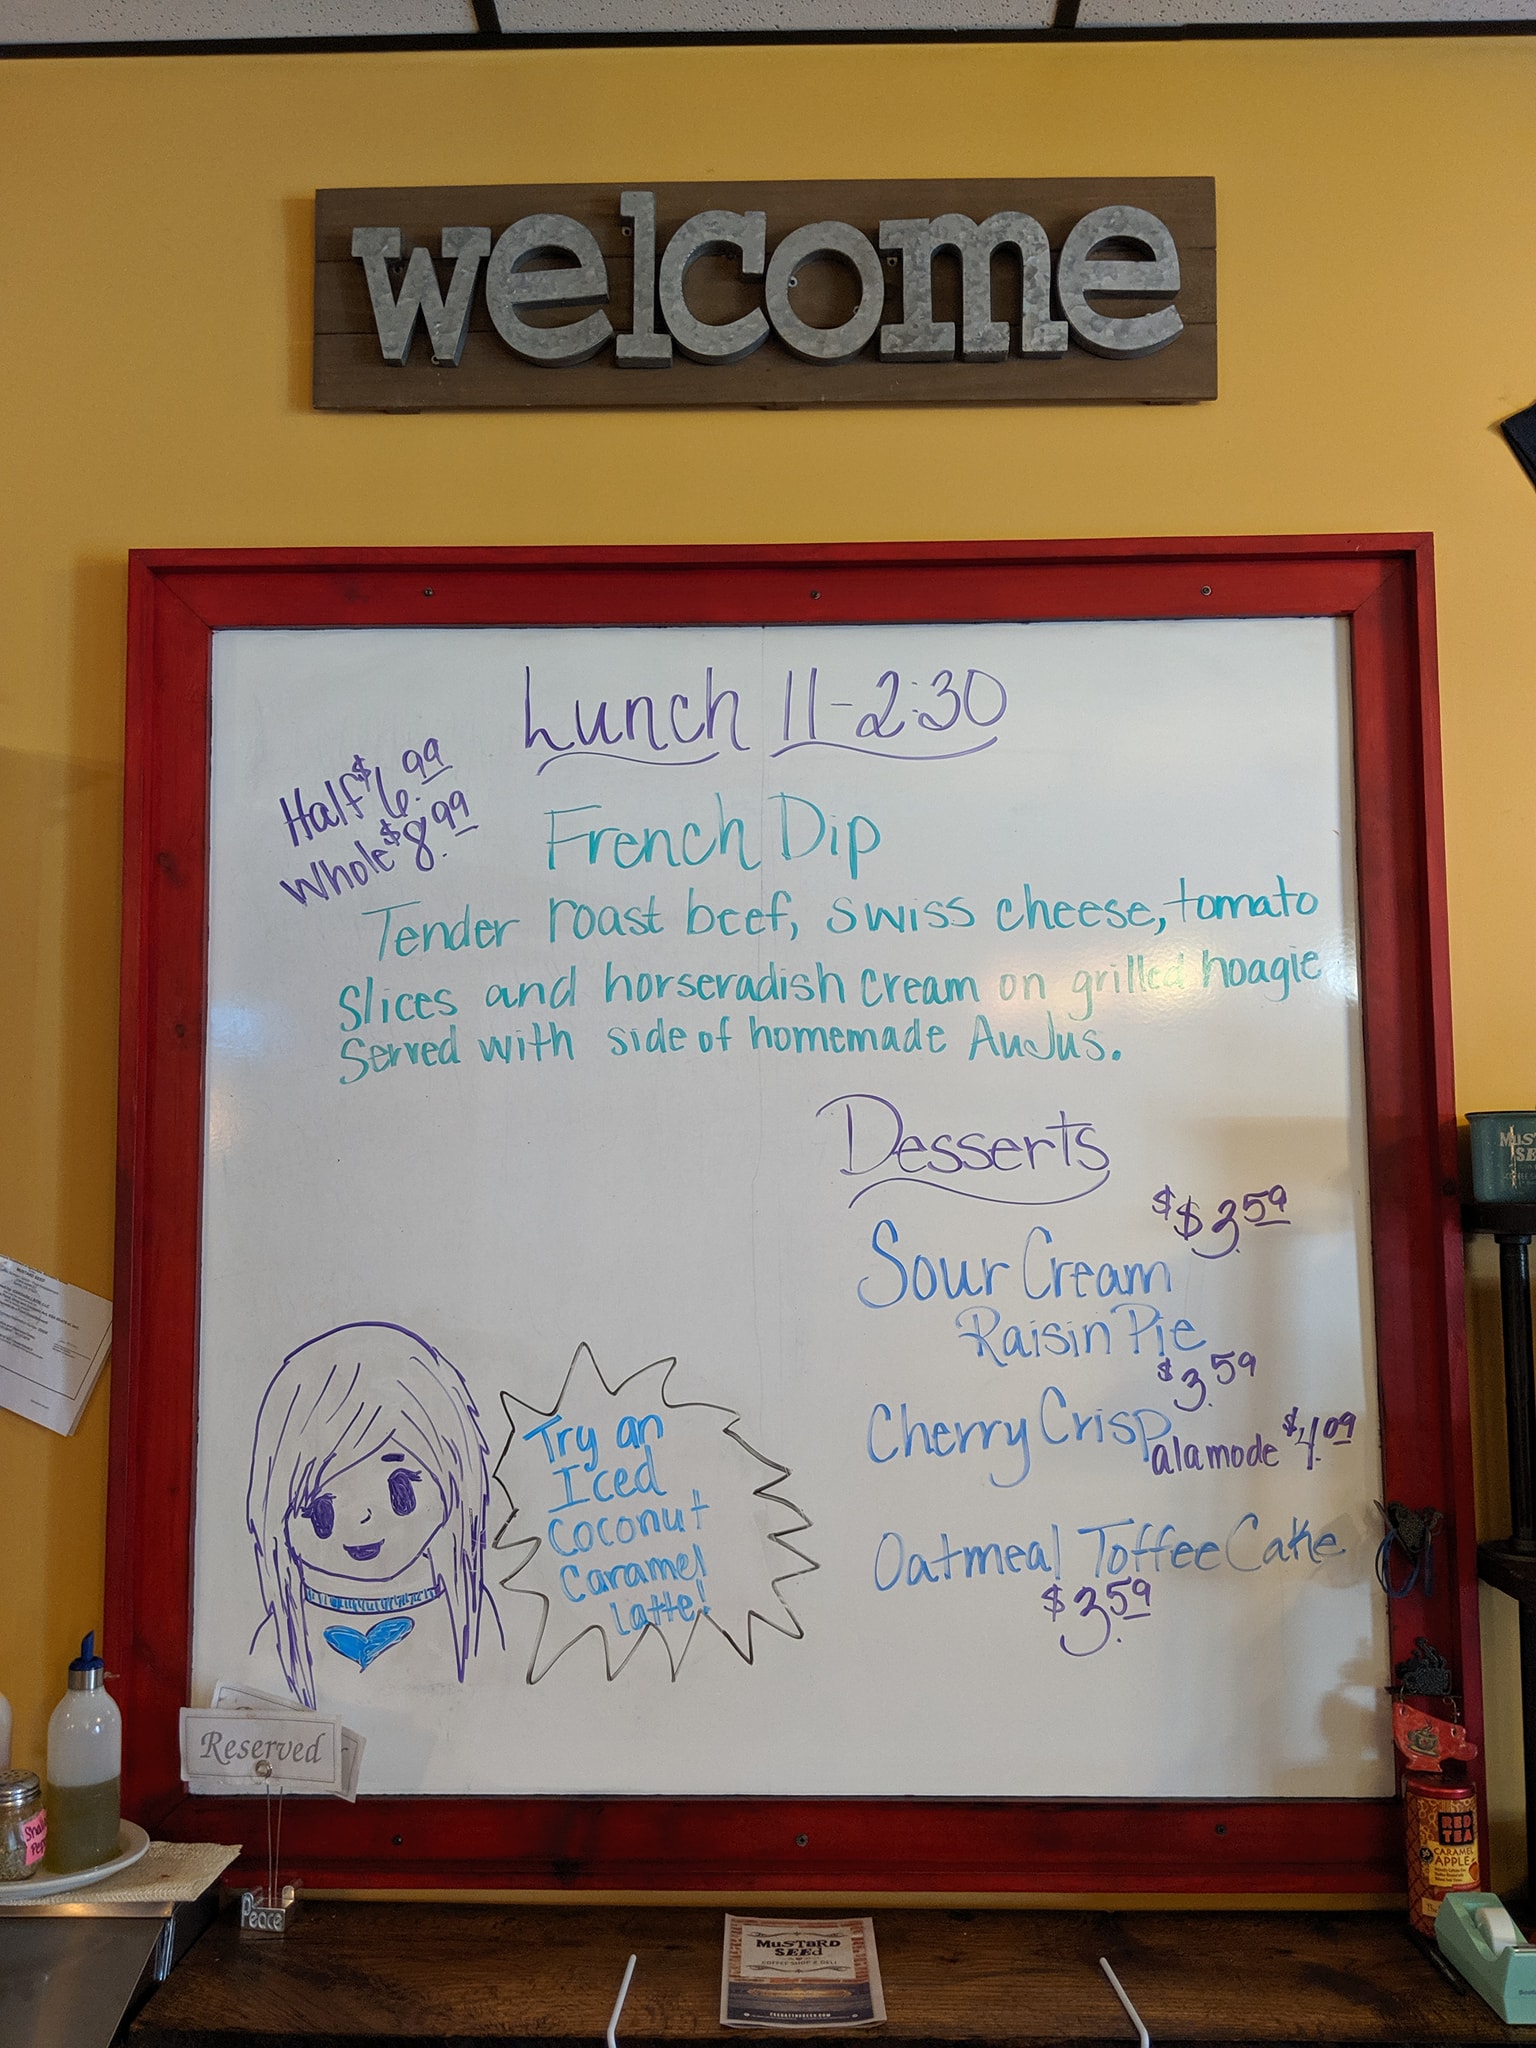 welcome
Lunch 11-2:30
Half $6.99
Whole $8.99
French Dip
Tender roast beef, swiss cheese, tomato
slices and horseradish cream on grilled hoagie
Served with side of homemade AuJus.
Desserts
$ $3.59
Sour Cream
Raisin Pie
$3.59
Cherry Crisp
alamode $4.09
Oatmeal Toffee Cake
$3.59
Try an
Iced
Coconut
Caramel
Latte!
Reserved
Peace
MUSTARD
SEEd
COFFEE SHOP & DELI
RED
TEA
CARAMEL
APPLE